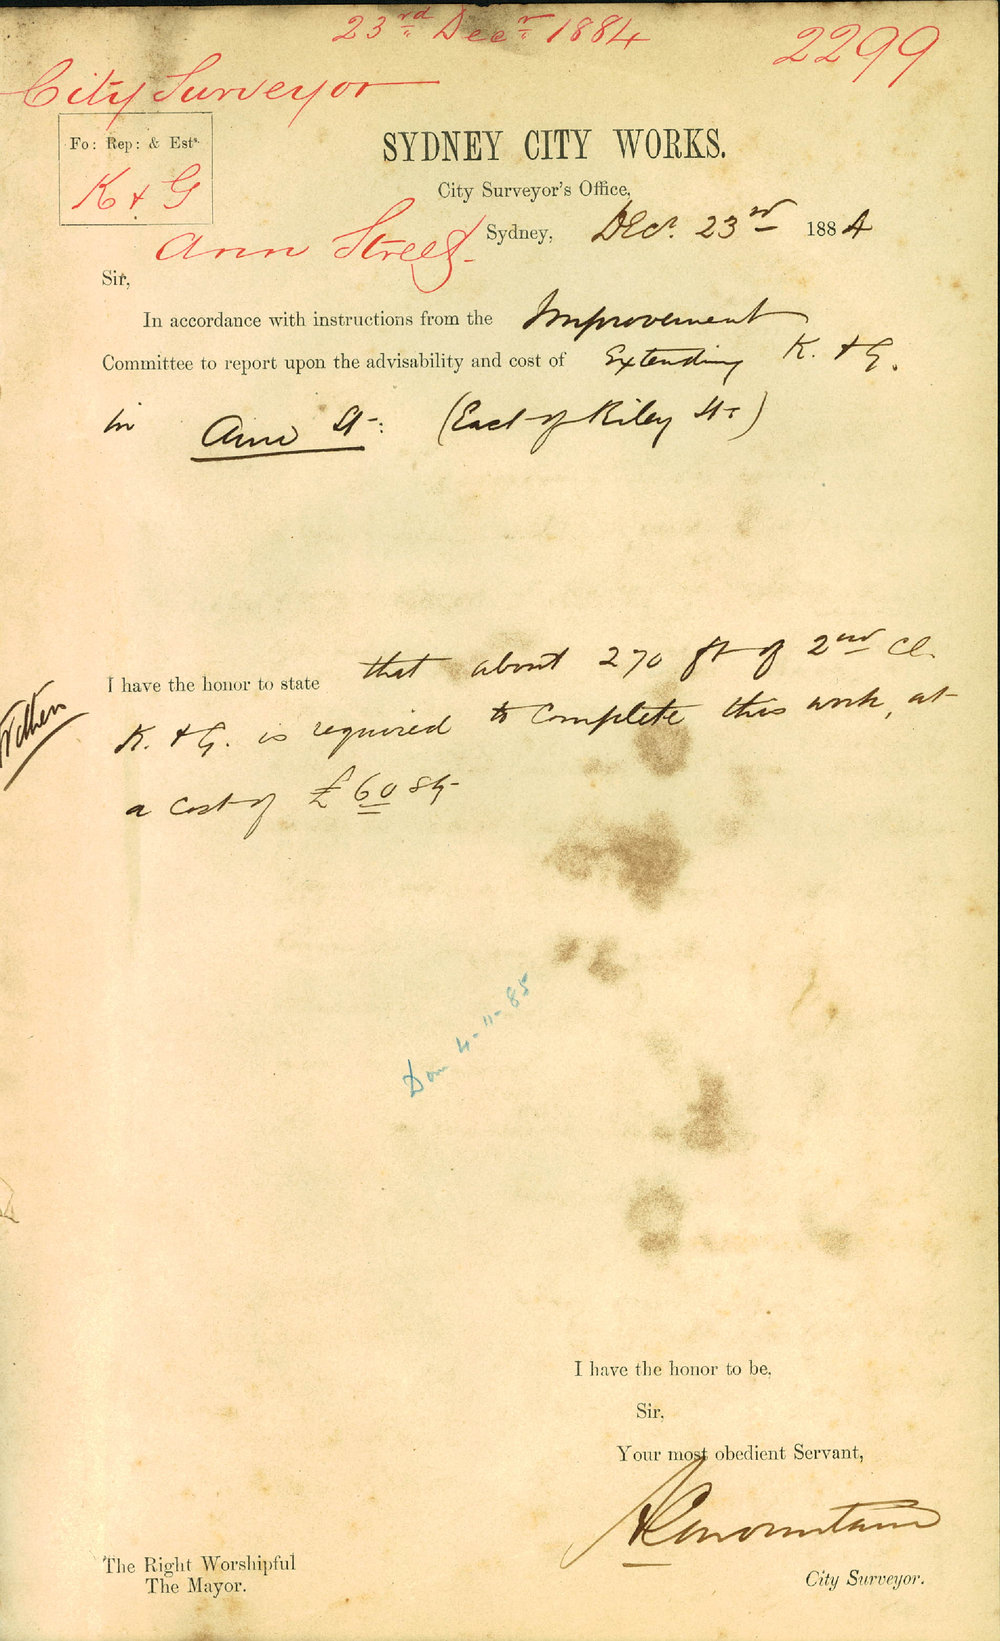 23rd Decr 1884
2299
City Surveyor
Fo: Rep: & Ests.
K & G
SYDNEY CITY WORKS.
City Surveyor's Office,
Ann Street
Sydney, Decr. 23rd 1884
Sir,
In accordance with instructions from the Improvement
Committee to report upon the advisability and cost of Extending K. & G.
in Ann St: (East of Riley St)
I have the honor to state that about 270 ft of 2nd Cl.
K. & G. is required to complete this work, at
a cost of £60
4-11-85
I have the honor to be,
Sir,
Your most obedient Servant,
City Surveyor.
The Right Worshipful
The Mayor.